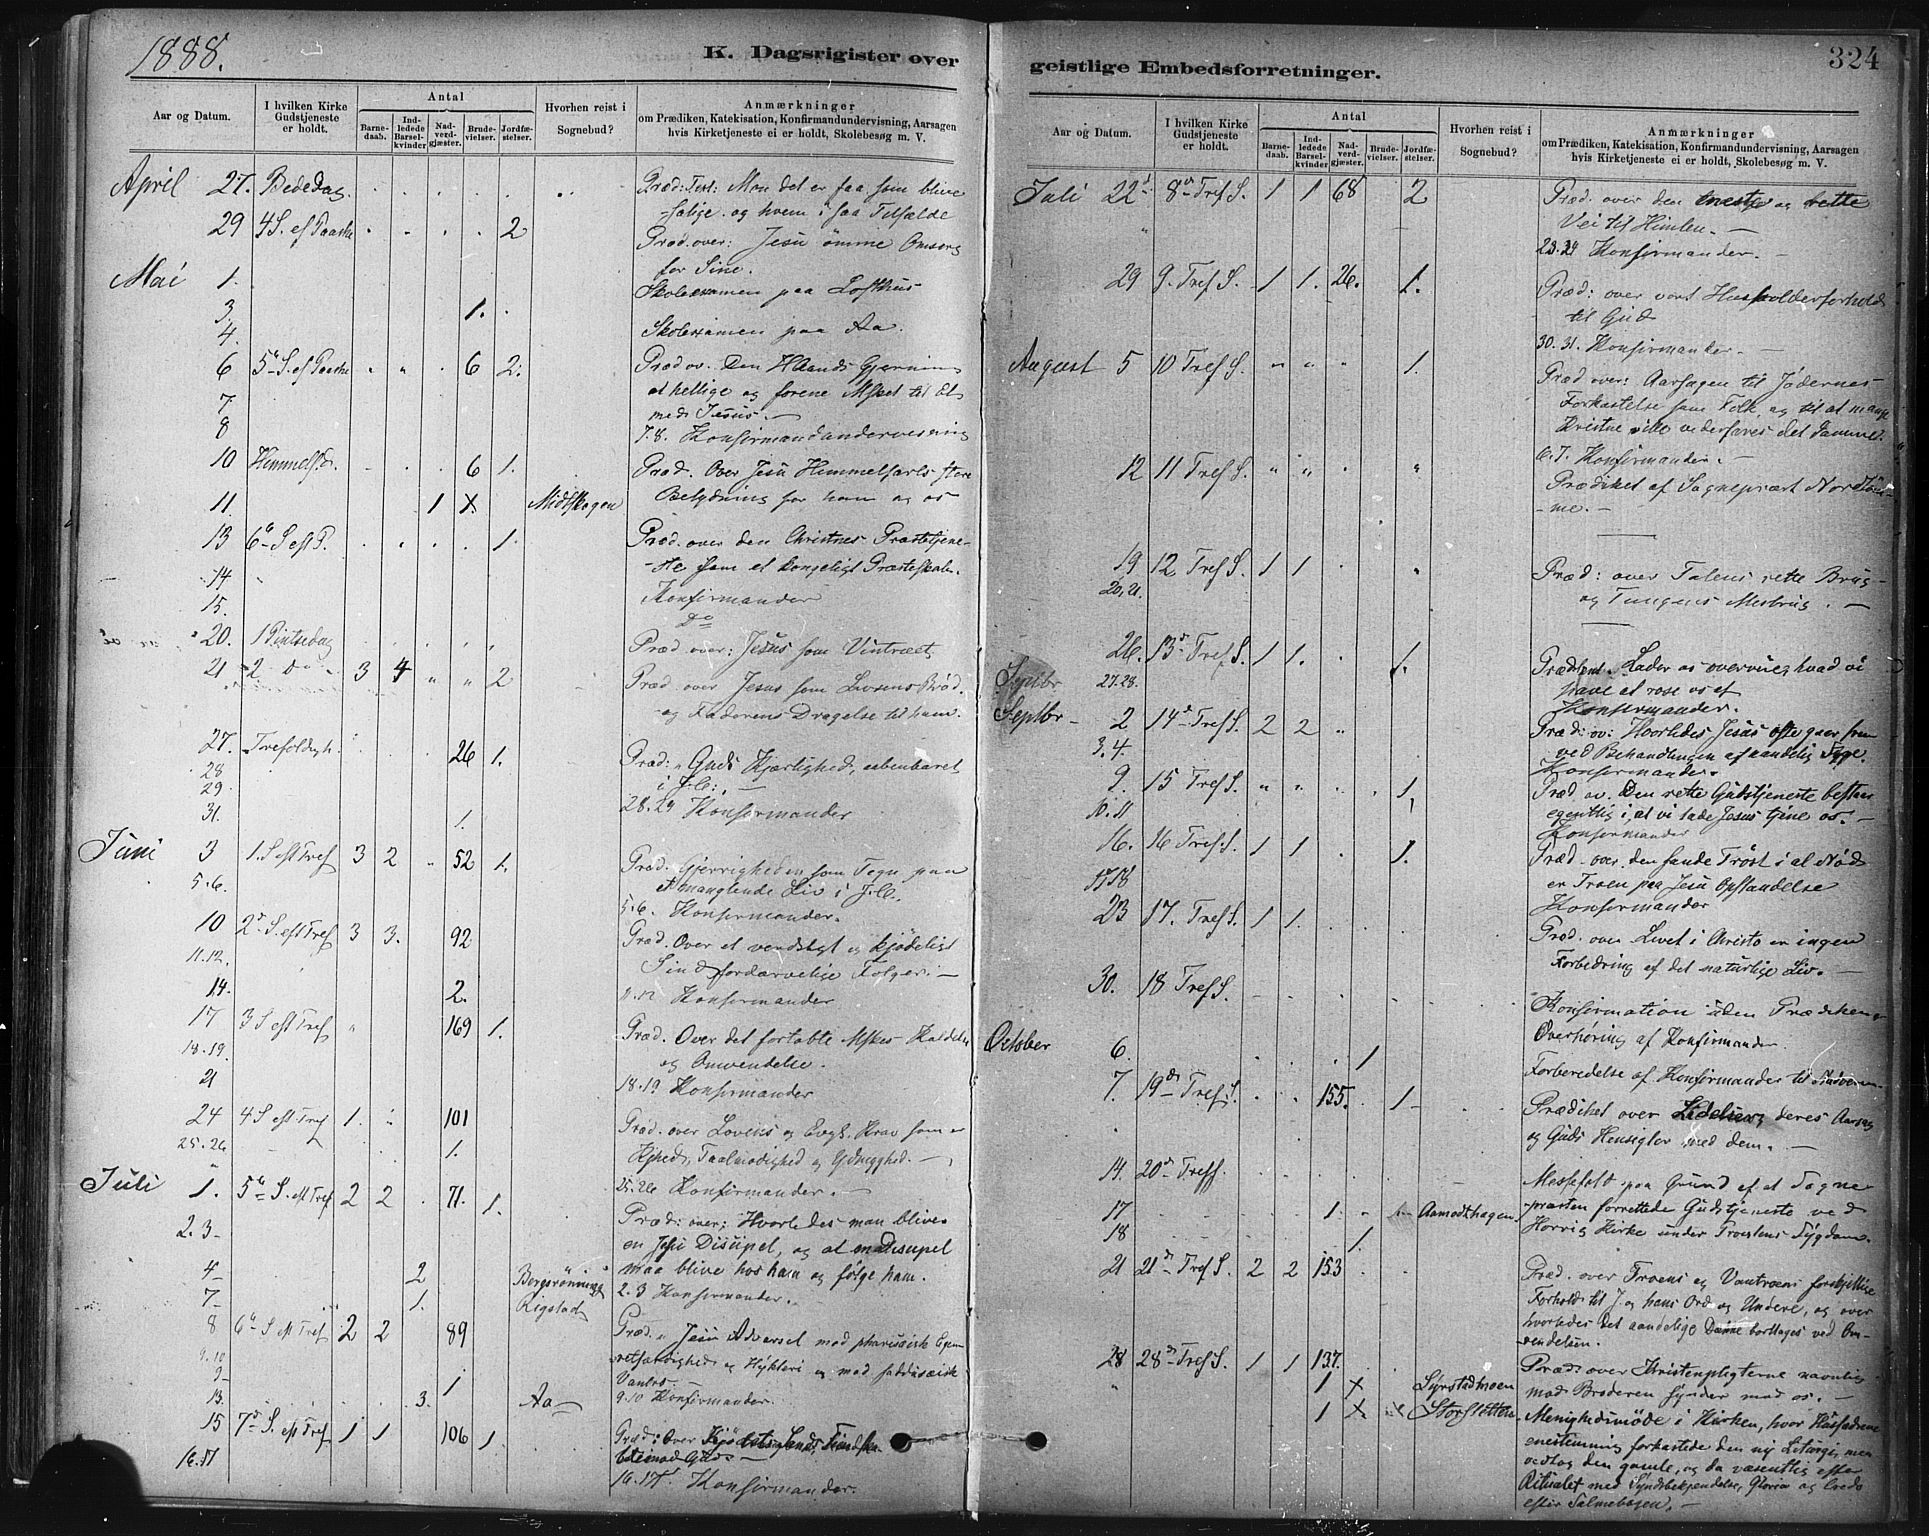 1888.
K. Dagsrigister over
Aar og Datum.
I hvilken Kirke Gudstjeneste er holdt.
Antal
Barnedaab.
Indledede Barselkvinder
Nadverdgjæster.
Brudevielser.
Jordfæstelser.
Hvorhen reist i Sognebud?
Anmærkninger
om Prædiken, Katekisation, Konfirmandundervisning, Aarsagen
hvis Kirketjeneste ei er holdt, Skolebesøg m. V.
April 27. Bededag Præd: Text: Mon det er faa som blive
salige og hvem i saa Tilfælde
29 4 S. ef Paaske 2 Præd. over: Jesu ømme Omsorg
for Sine.
Mai 1. Skoleexamen paa Lofthus
3. 1.
4. Skoleexamen paa Aa.
6 5 S. ef Paaske 6 2. Præd ov. Den H Aands Gjerning
at hellige og forene Msket til Et
7. med Jesus. —
8 7.8. Konfirmandundervisning
10 Himmelf.d. 6 1. Præd. Over Jesu Himmelfarts store
Betydning for ham og os
11. 1 X. Midtskogen
13 6 S. eft P. 1. Præd. over den Christnes Præstetjene-
ste som et kongeligt Præsteskab.
14 Konfirmander
15. Do
20. 1 Pintsedag Præd. over: Jesus som Vintræet
21 2 Do 3 4 2 Præd over Jesus som Livsens Brød
og Faderens Dragelse til ham.
27. Trefoldigh. 26 1. Præd: Guds Kjærlighed, aabenbaret
i J.C. —
28
29 28.29 Konfirmander
31. 1.
Juni 3 1. S eft Tref 3 2 52 1. Præd. Gjerrigheden som Tegn paa
et manglende Liv i J.C.
5.6. 5.6. Konfirmander.
10 2 S. eft Tref 3 3. 92 Præd. Over et verdsligt og kjødeligt
Sinds fordærvelige Følger. —
11.12. 11.12 Konfirmander
14. 2.
17 3 S eft Tref 169 1. Præd. Over det fortabte Mskes Kaldelse
og Omvendelse.
18.19. 18.19 Konfirmander
21
24 4 S eft Tref 1. 101 Præd. over Lovens og Evgl. Krav som er
Kjhed, Taalmodighed og Ydmyghed. —
25.26 1. 25.26 Konfirmander. —
Juli 1. 5 S. eft Tref 2 2 71. 1. Præd: over: Hvorledes man bliver
en Jesu Discipel, og at en Discipel
maa blive hos ham og følge ham.
2.3 2.3 Konfirmander.
4 2 Borgsrönningen
7 1. Rigstad
8 6 S. eft Tref 2 2 89 Præd. Jesu Advarsel mod pharisæisk Egen-
retfærdighed og Hykleri og mod sadducæisk
Vantro.
9.10 9.10 Konfirmander.
9 1
13. 3. Aa
15 7 S. eft Tref 1 1 106 1 Præd: Over
mod Guds —
16.17 16.17. Konfirmander.
geistlige Embedsforretninger.
324
Aar og Datum.
I hvilken Kirke Gudstjeneste er holdt.
Antal
Barnedaab.
Indledede Barselkvinder
Nadverdgjæster.
Brudevielser.
Jordfæstelser.
Hvorhen reist i Sognebud?
Anmærkninger
om Prædiken, Katekisation, Konfirmandundervisning, Aarsagen
hvis Kirketjeneste ei er holdt, Skolebesøg m. V.
Juli 22 8 Tref S. 1 1 68 2 Præd. over den eneste og rette
Vei til Himlen. —
23.24 Konfirmander. —
29 9. Tref S. 1 1. 26. 1. Præd: over vort Husholderforhold
til Gud
30.31. Konfirmander. —
August 5 10 Tref S. 1. Præd over: Aarsagen til Jødernes
Forkastelse som Folk, og til at mange
Kristne ville vederfares det Samme.
6.7. Konfirmander. —
12 11 Tref S. Prædiket af Sognepræst
me. —
19 12 Tref S. 1 1 Præd: over Talens rette Brug
20,21. og Tungens Misbrug. —
26. 13 Tref S. 1 1. 1. Præd. Lader os overveie, hvad vi
Septbr 27.28. have at rose os af
Konfirmander.
Septbr 2 14 Tref S. 2 2 Præd: ov: Hvorledes Jesus ofte gaar frem
3.4. ved Behandlingen af aandelig Syge.
Konfirmander.
9. 15 Tref S. 1 Præd ov. Den rette Gudstjeneste bestaar
10.11 egentlig i, at vi lade Jesus tjene os. —
Konfirmander
16. 16 Tref S. 1 1 1. Præd over den sande Trøst i al Nød
17 18 er Troen paa Jesu Opstandelse
Konfirmander
23 17. Tref S. 1 1. Præd. over Livet i Christo er ingen
Forbedring af det naturlige Liv. —
30. 18 Tref S. Konfirmation uden Prædiken
October Overhøring af Konfirmander.
6. 1 Forberedelse af Konfirmander til
7. 19 Tref. S. 155. 1 Prædiket over Lidelser, deres Aarsag
og Guds Hensigter med dem. —
14. 20 Tref S. Messefald paa Grund af at Sogne-
præsten forrettede Gudstjeneste ved
17 1. 1. Aamodthagen
18 1. Kirke under Provstens Sygdom.
21 21 Tref S. 2 2 153 Præd. over Troens og Vantroens forskjellige
Forhold til J. og hans Ord og Undere, og over
hvorledes det aandelige borttages ved Om-
vendelsen.
28 28 Tref S. 1 1 137. Præd: over Kristenpligterne navnlig
mod Broderen synder mod os. —
1 X Syrstadmoen
1 X Storsletten Menighedsmöde i Kirken, hvor Husfædrene
enstemmig forkastede den ny Liturgi, men
vedtog den gamle, og da væsentlig efter
Ritualet med Syndsbekjendelse, Gloria og Credo
efter Salmebogen. —